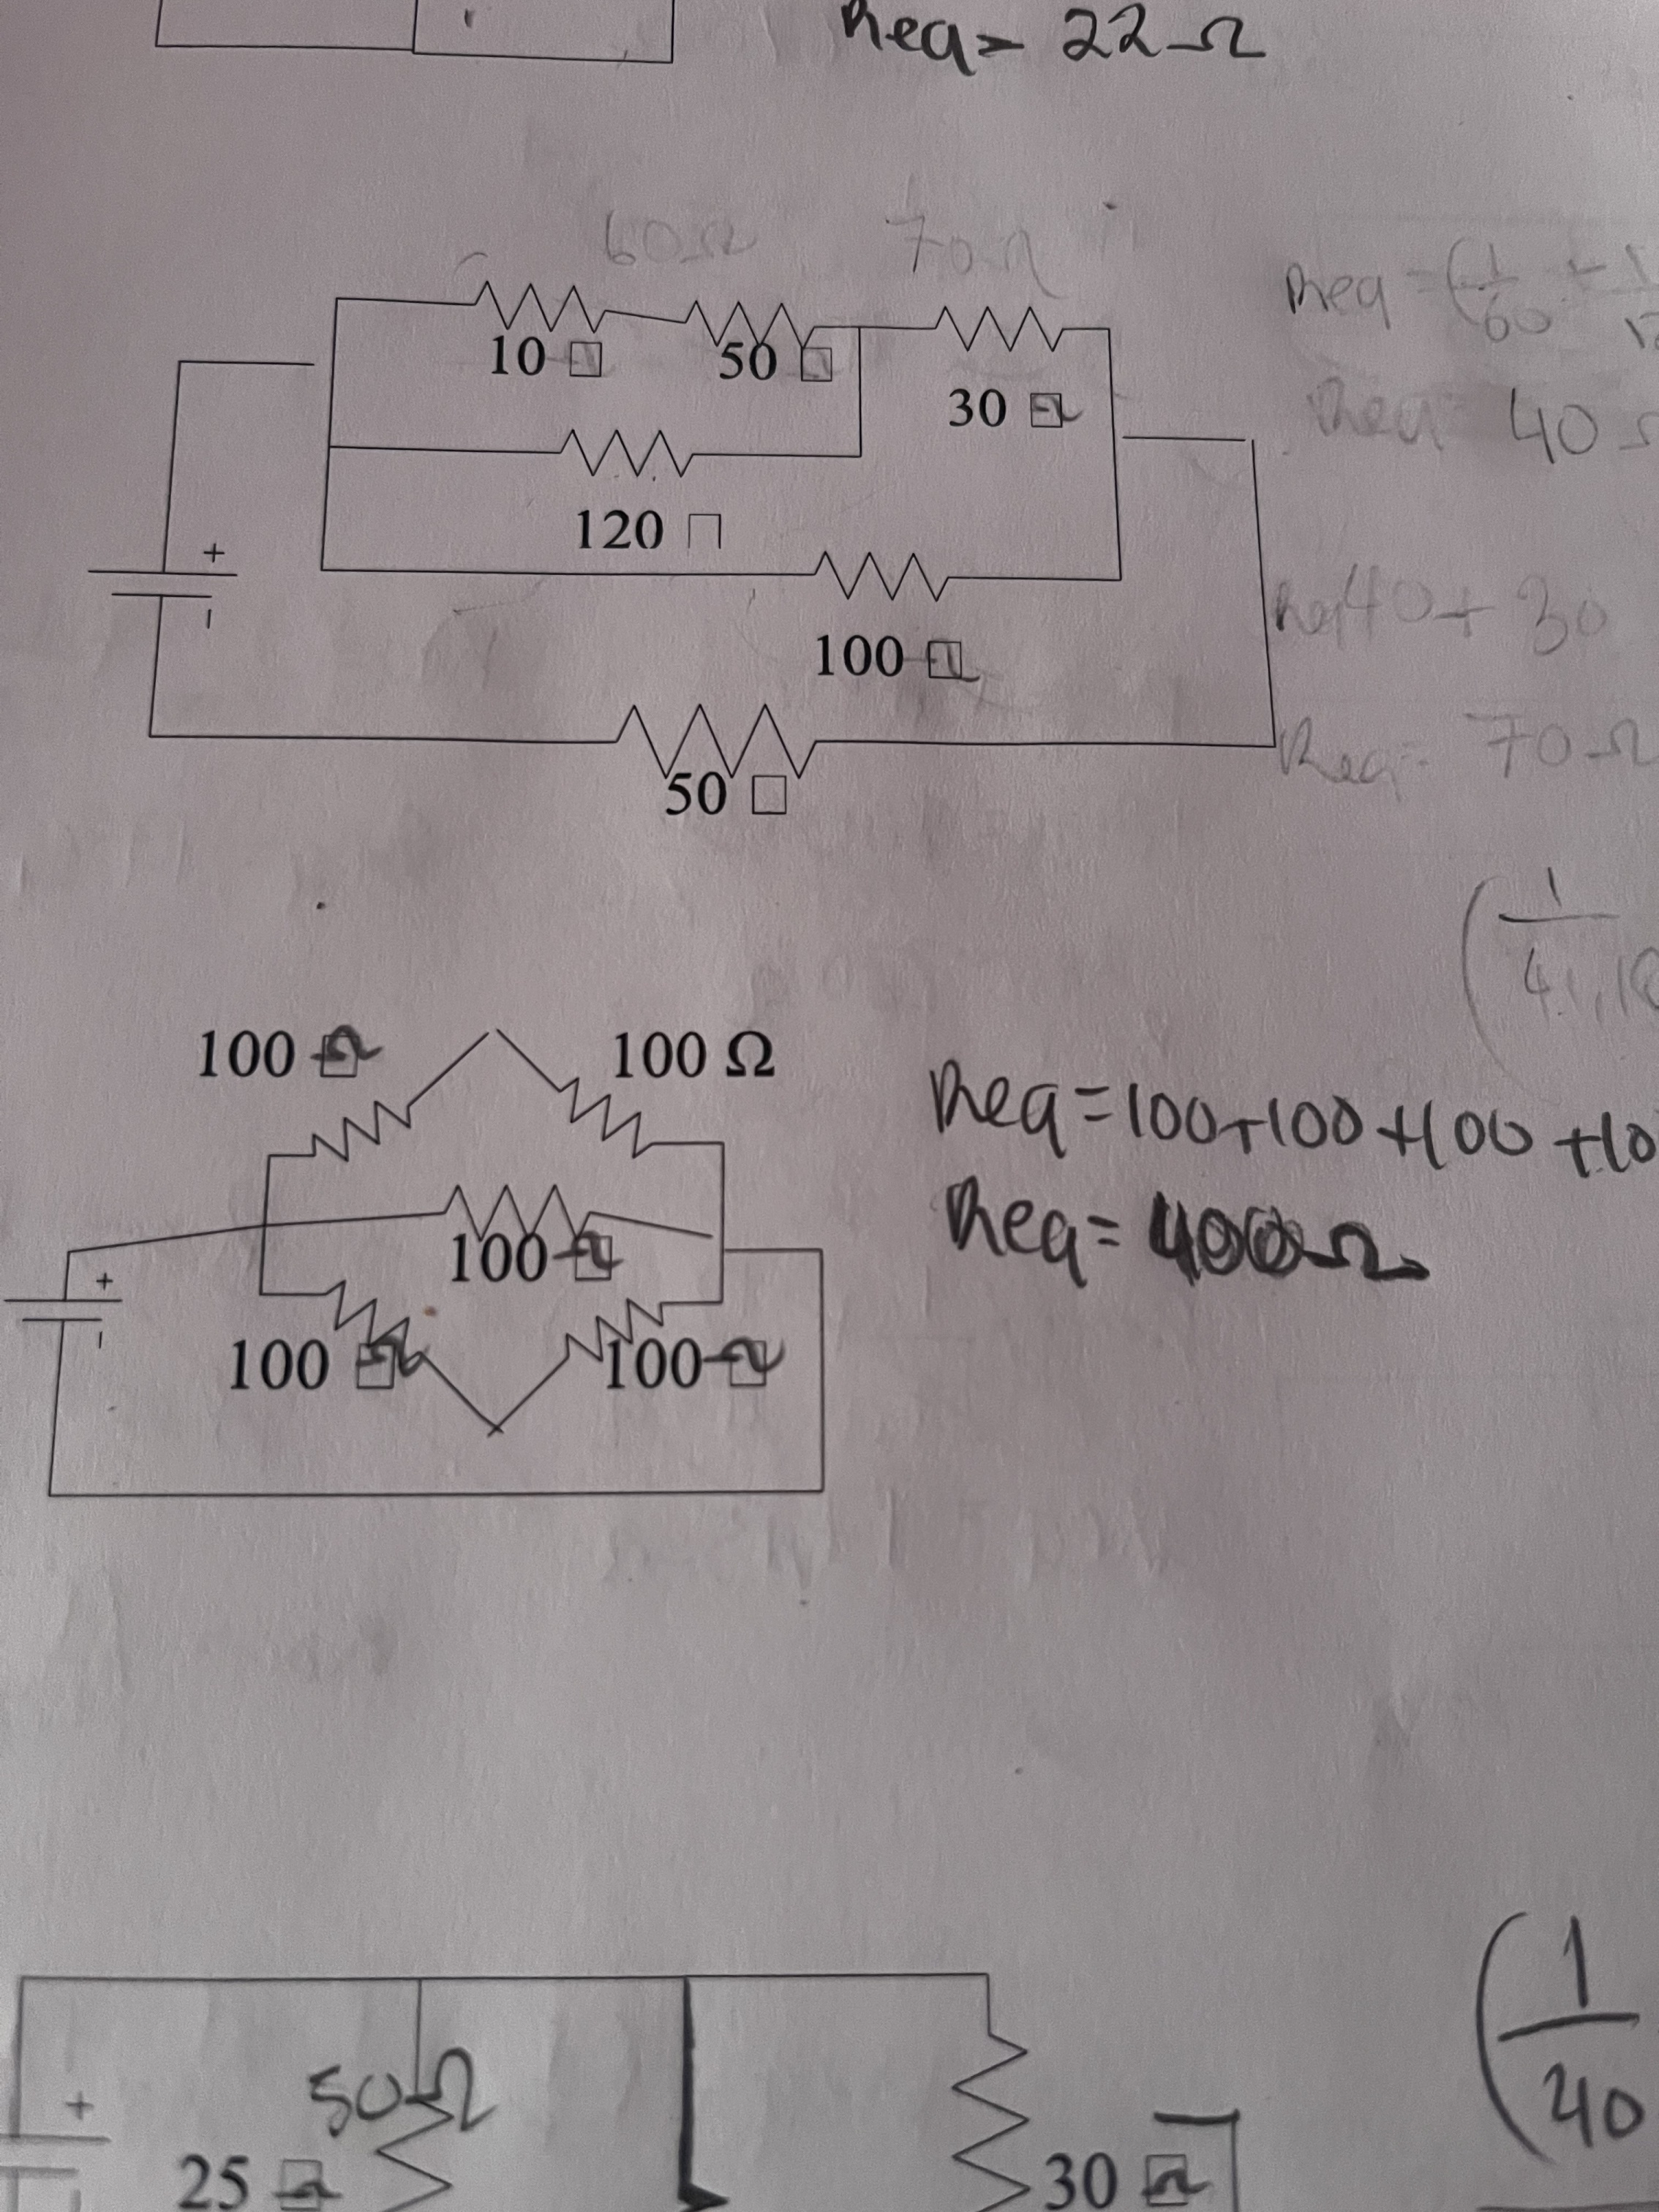 Req = 22 Ω
60Ω 70Ω
Req = (1/60 + 1
10 □ 50 □
30 Ω
Req = 40
120 □
+
-
Req 40 + 30
100 Ω
Req = 70Ω
50 □
(1/41,18
100 Ω 100 Ω
Req = 100 + 100 + 100 + 10
Req = 400Ω
100 Ω
+
-
100 Ω 100 Ω
(1/40
50Ω
+
25 Ω 30 Ω